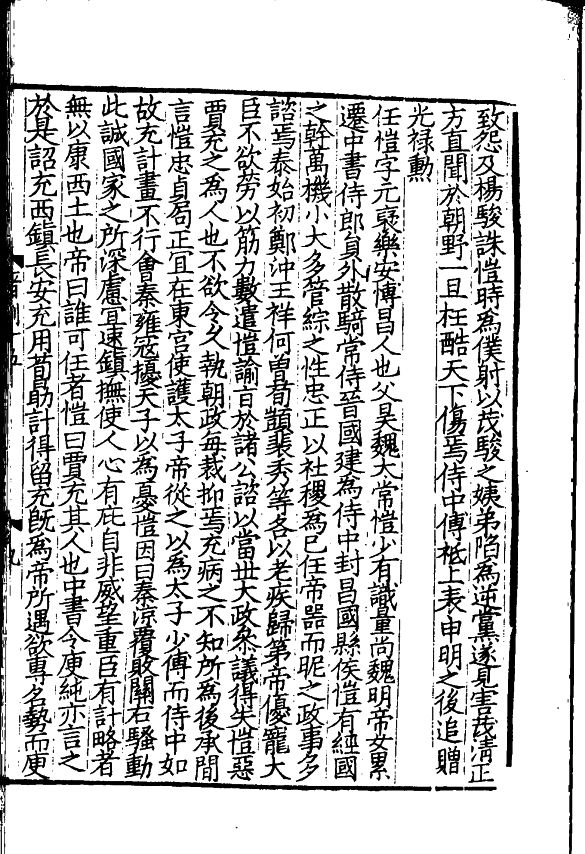 致怨及楊駿誅愷時為僕射以茂駿之姨弟陷為逆黨遂見害茂清正
方直聞於朝野一旦枉酷天下傷焉侍中傅袛上表申明之後追贈
光禄勲
任愷字元裒樂安博昌人也父昊魏大常愷少有識量尚魏明帝女累
遷中書侍郎負外散騎常侍晉國建為侍中封昌國縣侯愷有經國
之幹萬機小大多管綜之性忠正以社稷為已任帝器而昵之政事多
諮焉泰始初鄭沖王祥何曽荀顗裴秀等各以老疾歸第帝優寵大
臣不欲勞以筋力數遣愷諭旨於諸公諮以當世大政叅議得失愷惡
賈充之為人也不欲令久執朝政毎裁抑焉充病之不知所為後承間
言愷忠貞局正宜在東宮使護太子帝從之以為太子少傅而侍中如
故充計畫不行會秦雍寇擾天子以為憂愷因曰秦涼覆敗關右騷動
此誠國家之所深慮宜速鎮撫使人心有庇自非威望重臣有計略者
無以康西土也帝曰誰可任者愷曰賈充其人也中書令庾純亦言之
於是詔充西鎮長安充用荀勖計得留充旣為帝所遇欲専名勢而庾